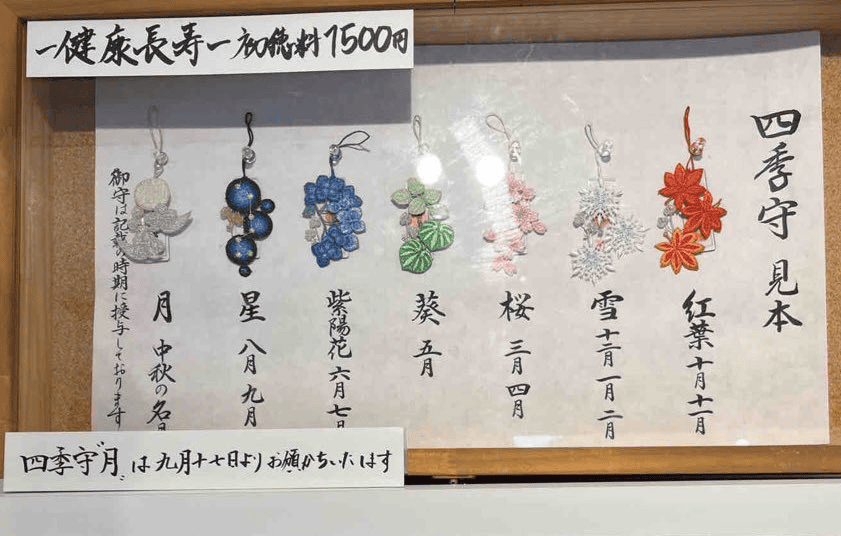 一健康長寿一初穂料1500円
四季守 見本
紅葉 十月十一月
雪 十二月一月二月
桜 三月四月
葵 五月
紫陽花 六月七月
星 八月九月
月 中秋の名月
御守は記載の時期に授与しております
四季守"月"は九月十七日よりお願かちいたします